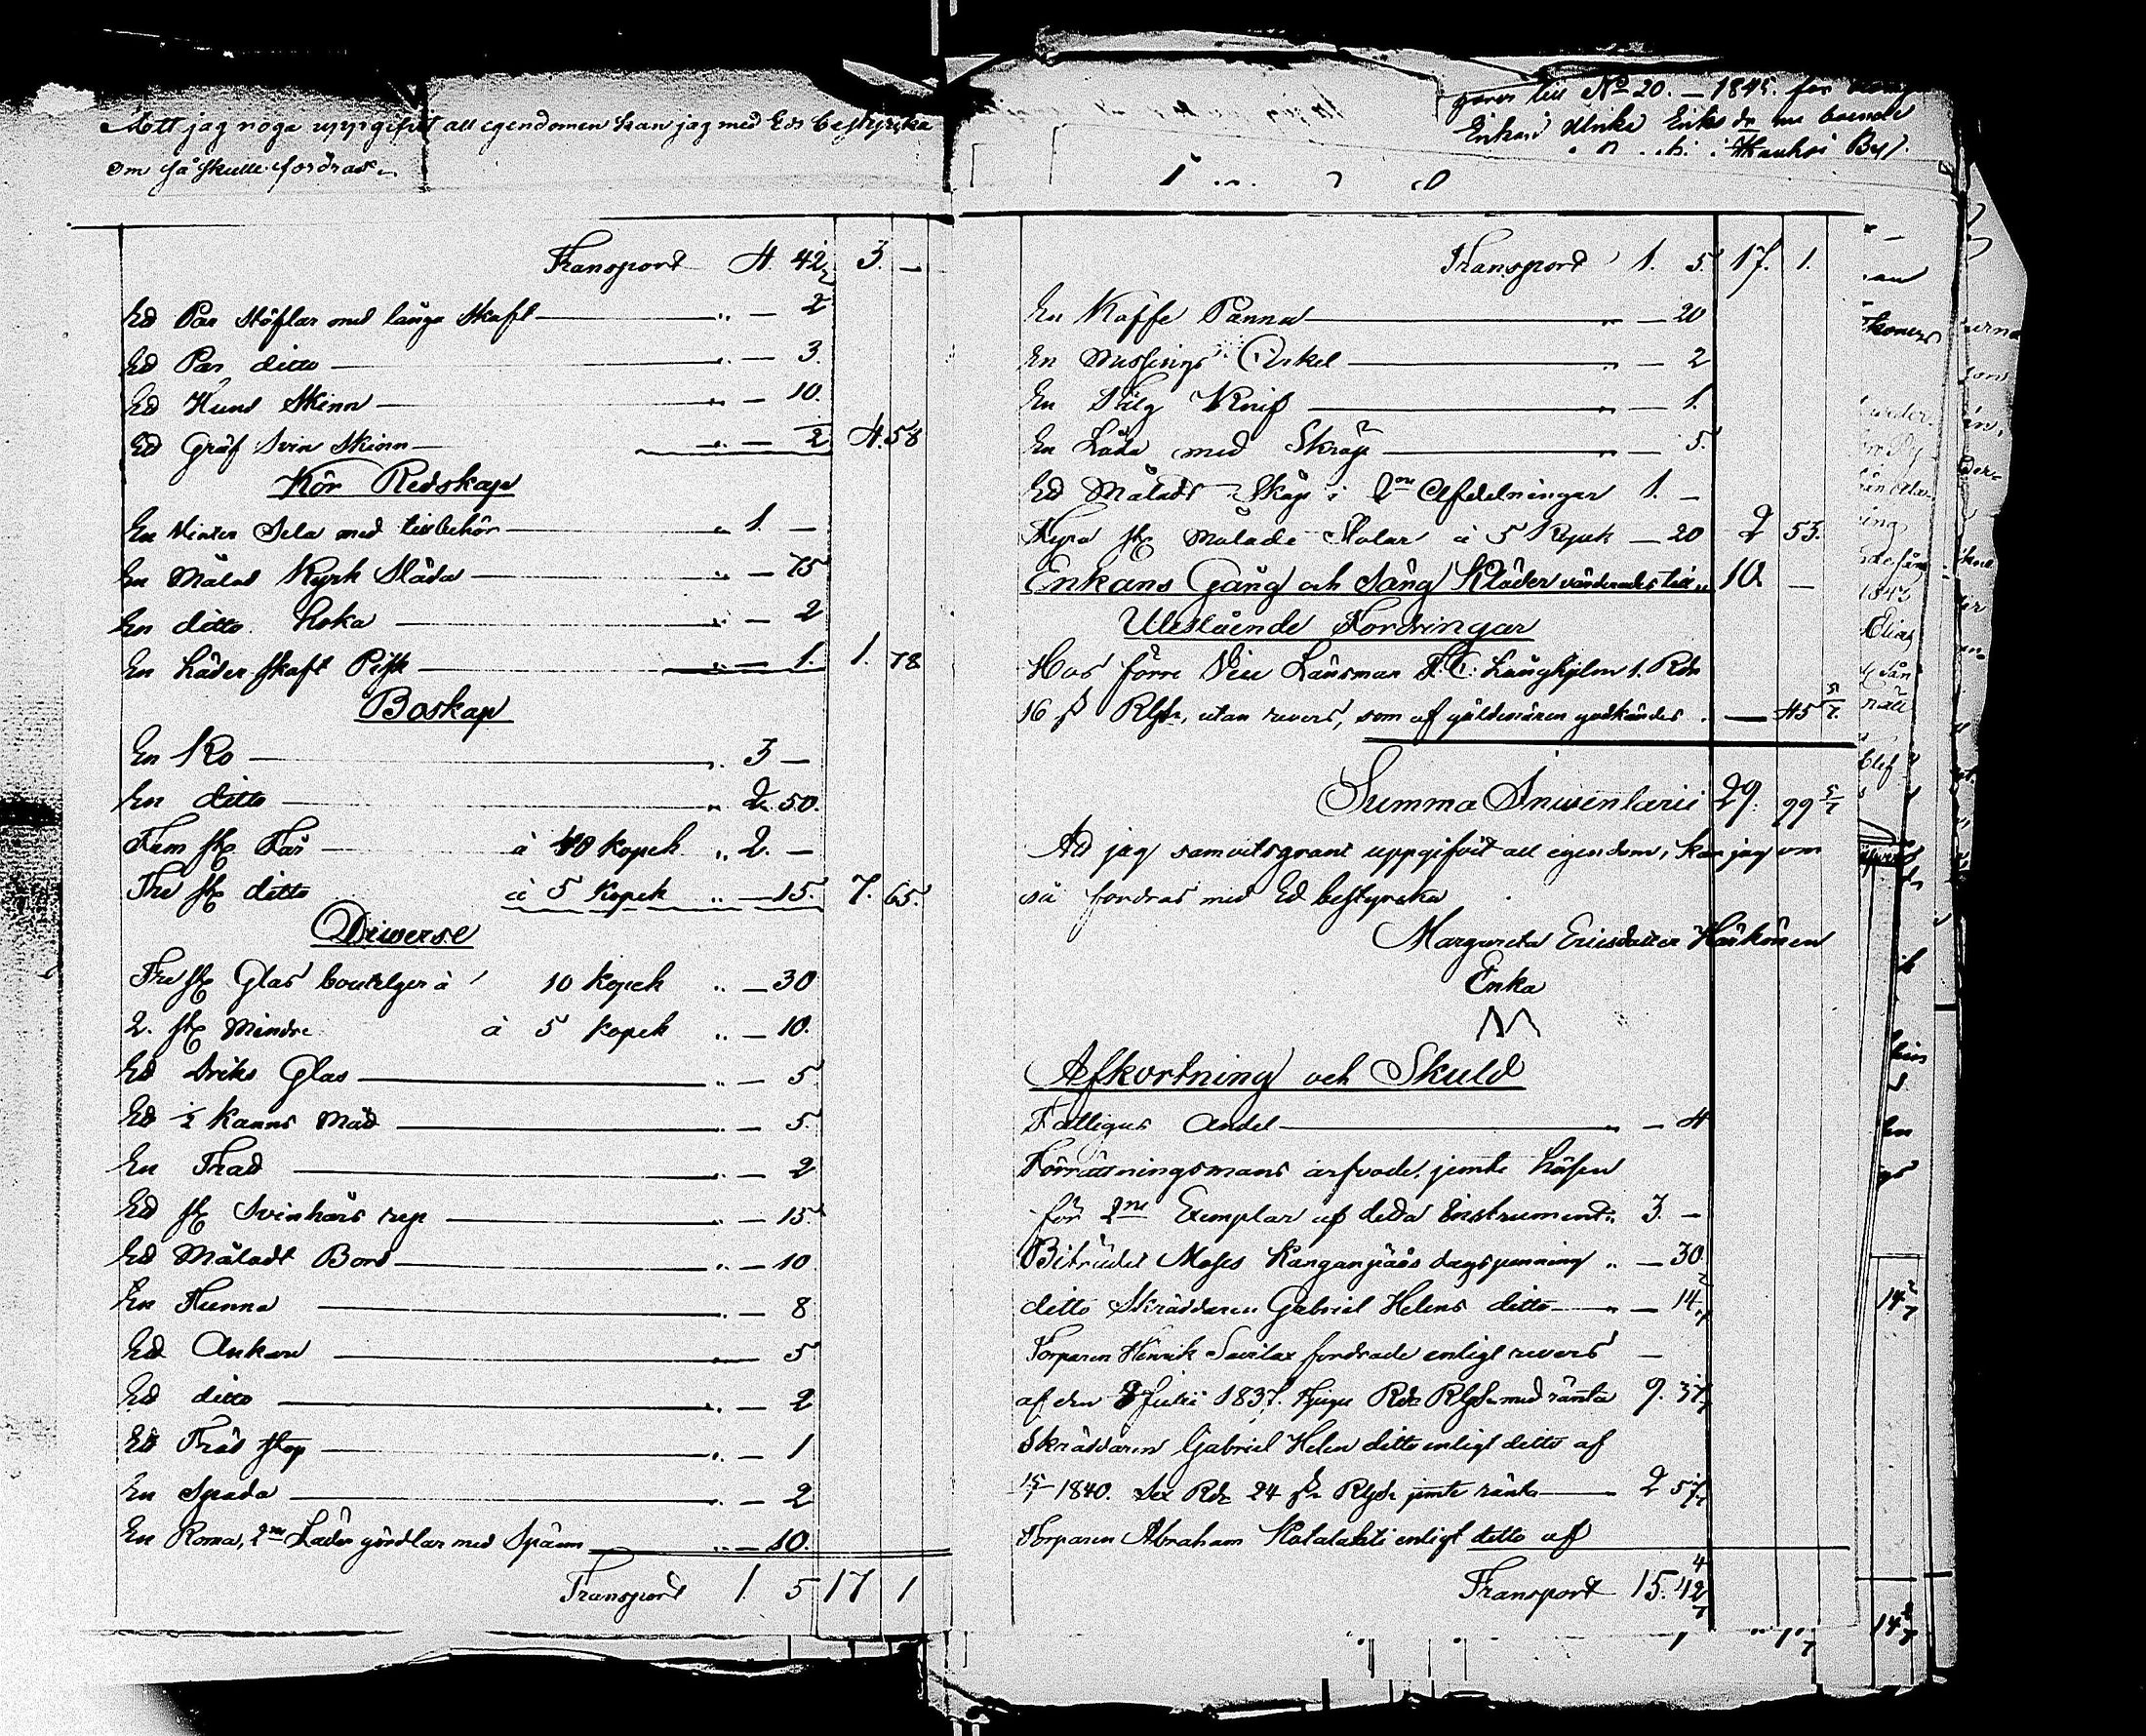 Att jag noga uppgifvit all egendomen kan jag med Ed bestyrcka
om så skulle fordras.
Transport 4. 42 3. —
Ed Par Stöflar med långa Skaft „ — 2
Ed Par ditto „ — 3.
Ed Hund Skinn „ — 10.
Ed Gräf Svin Skinn „ — 2 4. 58
Kör Redskap
En Vinter Sela med tillbehör „ 1. —
En Målad Kyrk Släda „ — 75
En ditto Loka „ — 2
En Läder skaft Pisk „ — 1. 1. 78
Boskap
En Ko „ 3 —
En ditto „ 2. 50.
Fem st Får à 40 Kopek „ 2. —
Tre st ditto à 5 Kopek „ — 15. 7. 65.
Diverse
Tre st Glas bouteljer à 10 Kopek „ — 30
2. st Mindre à 5 Kopek „ — 10.
Ed Driks Glas „ — 5
Ed ½ Kanns Måd „ — 5.
En Trad „ — 2
Ed st Svinhårs rep „ — 15.
Ed Måladt Bord „ — 10
En Tunna „ — 8
Ed Ankare — 5
Ed ditto „ — 2
Ed Träd Stop „ — 1
En Spada „ — 2
En Roma, 2ne Läder gördlar med Spänn „ — 10.
Transport 1. 5 17 1
till No 20. — 1845. för
Enkan Ulrika Eriks dr boende
By.
Transport 1. 5. 17. 1.
En Kaffe Panna „ — 20
En Messings Cirkel „ — 2
En Tälg Knif „ — 1.
En Låda med Skräp „ — 5.
Ed Målads Skåp i 2ne Afdelningar 1. —
Fyra st Målade Stolar à 5 Kopek — 20 2 53.
Enkans Gång och Säng Kläder värderades till „ 10. —
Utestående Fordringar
Hos förre Vice Länsman F. C. Långhjelm 1. Rdr
16 s Rgs, utan revers, som af gäldenären godkändes . — 45 5/7.
Summa Inventarii 29. 99 5/7
At jag samvetsgrant uppgifvit all egendom, kan jag om
så fordras med Ed bestyrcka
Margareta Ericsdotter Härkönen
Enka
M
Afkortning och Skuld
Fattigas Andel „ — 4
Förrättningsmans arfvode, jemte lösen
för 2ne Exemplar af detta Instrument „ 3. —
Biträdet Moses Kangaspääs dagspenning „ — 30.
ditto Skräddaren Gabriel Helens ditto „ — 14 2/7
Torparen Henrik Savilax fordrade enligt revers —
af den 8 Julii 1837. Tjugu Rdr Rgs med ränta 9. 37
Skräddaren Gabriel Helen ditto enligt ditto af
1840. Sex Rdr 24 s Rgs jemte ränta 2 57
Torparen Abraham enligt ditto af
Transport 15. 42 4/7